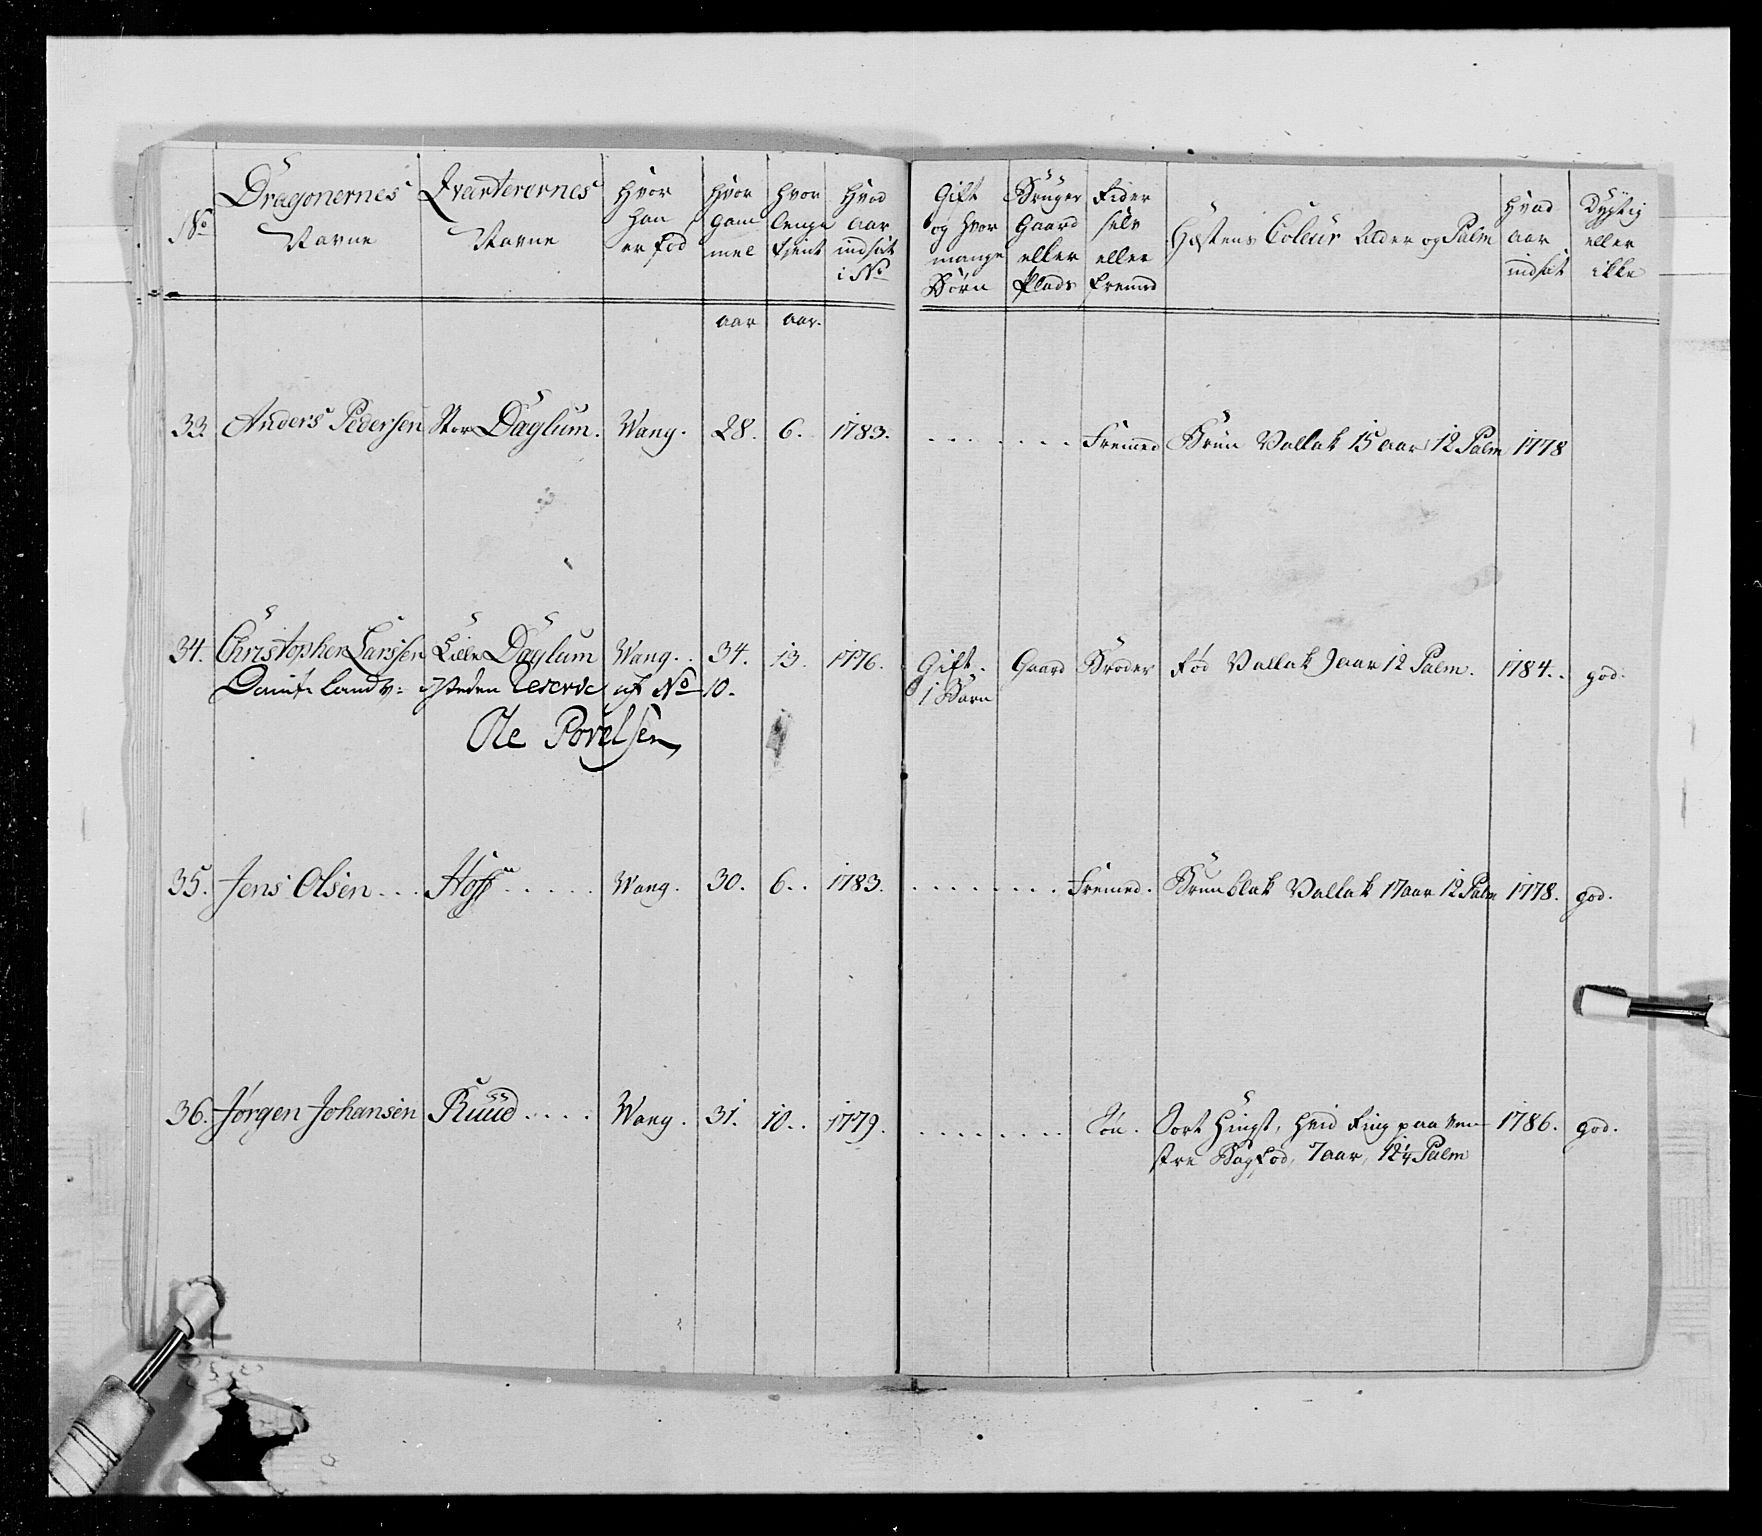 No | Dragonernes Navne | Qvarterernes Navne | Hvor han er fød | Hvor gam mel | Hvor lenge tient | Hvad aar indsat i No | Gift og hvor mange Børn | Bruger Gaard eller Plads | Rider selv eller Fremed | Hæstens Coleur Alder og Palm | Hvad aar indsat | Dygtig eller ikke
aar | aar.
33. | Anders Pedersen | Stor Daglum. | Wang. | 28. | 6. | 1783. | Fremed | Brun Vallak 15 aar 12 Palm | 1778
34. | Christopher Larssen | Lille Daglum | Wang. | 34. | 13. | 1776. | Gift. | Gaard | Broder | Rød Vallak 9 aar 12 Palm. | 1784. | god.
Landv: isteden Reserve af No 10. | 1 Barn
Ole Povelsen
35. | Jens Olsen | Hoff | Wang. | 30. | 6. | 1783. | Fremed. | Brunblak Vallak 17 aar 12 Palm | 1778. | god.
36. | Jørgen Johansen | Ruud | Wang. | 31. | 10. | 1779. | Søn. | Sort Hingst, hvid Ring paa ven- | 1786. | god.
stre Bagfod, 7 aar, 12¼ Palm